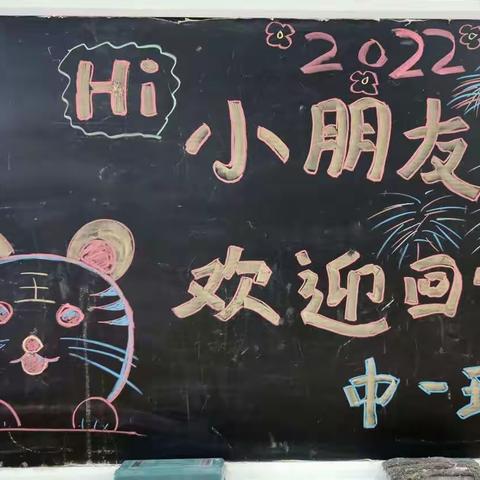 Hi
2022
小朋友
欢迎回
中一
王